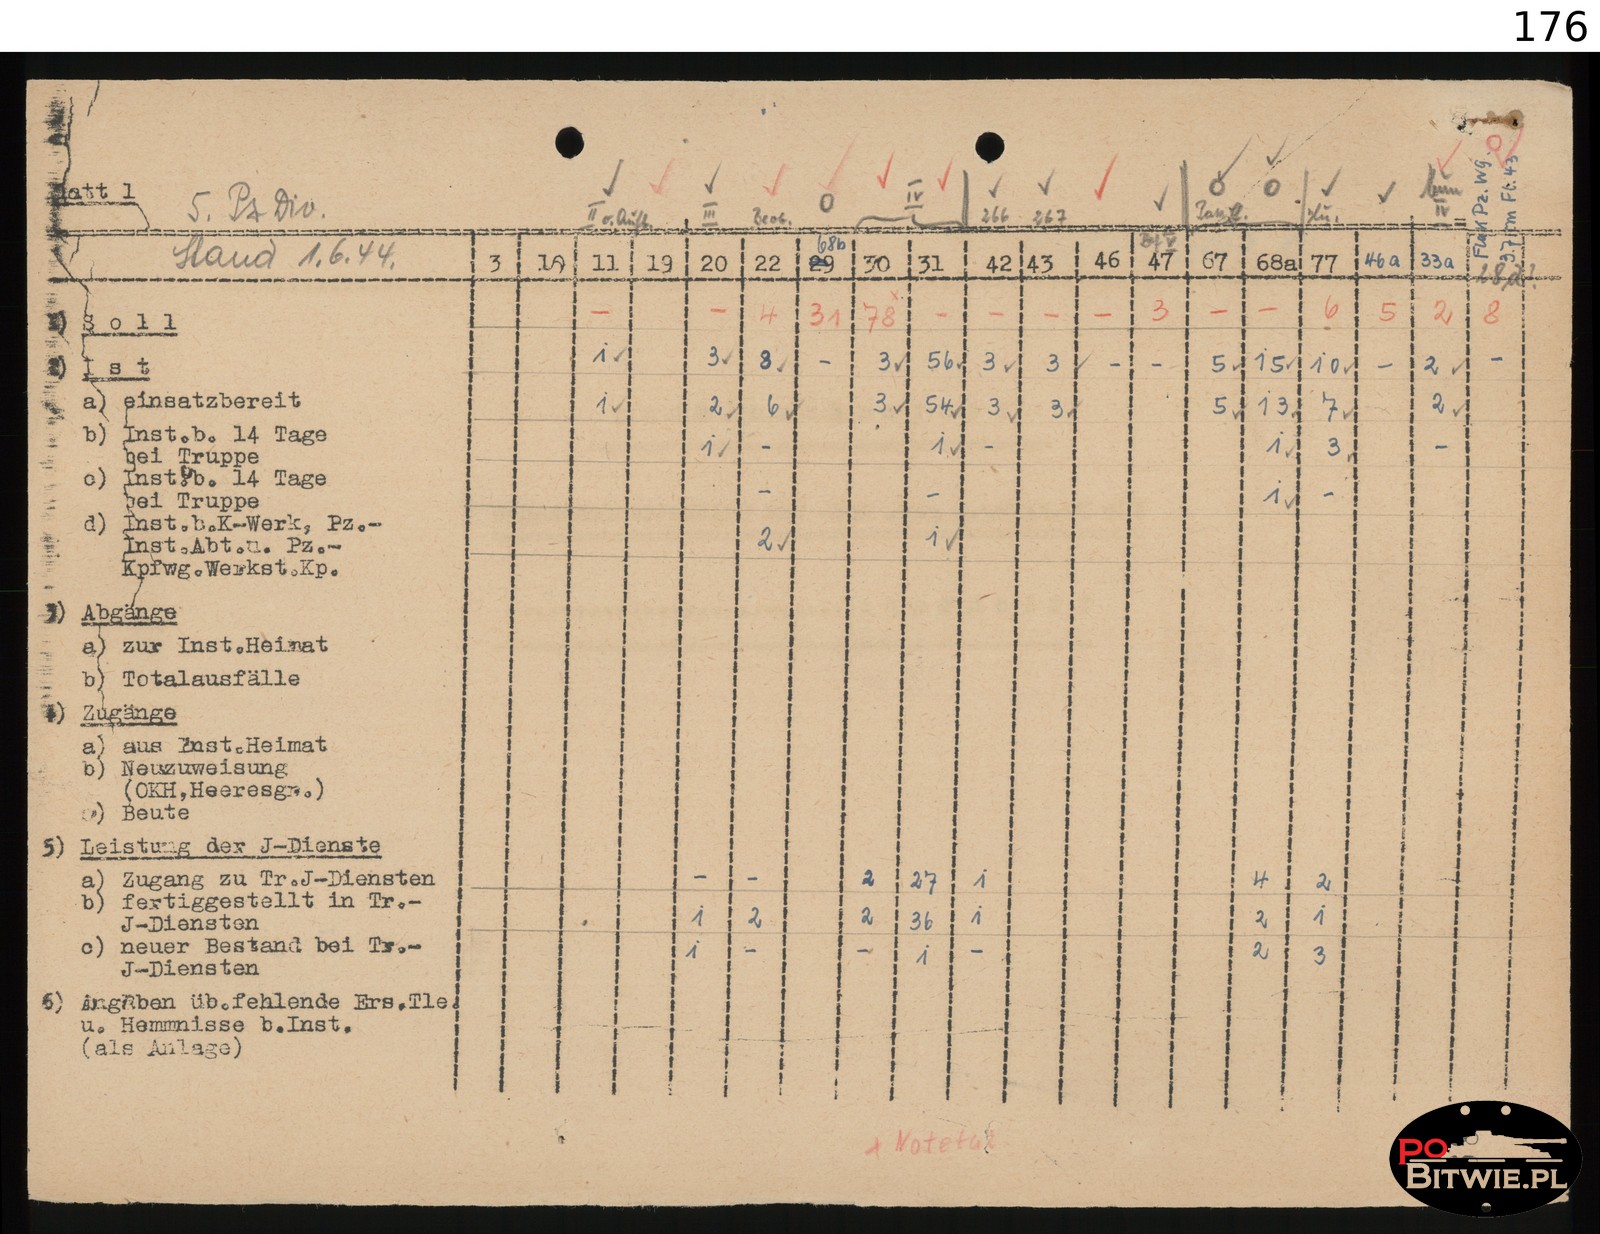 176
att 1
5. Pz Div.
II III Beob. IV 266 267 IV
Flak Pz. Wg.
3,7 cm Fl. 43
Stand 1.6.44.
3 10 11 19 20 22 29 68b 30 31 42 43 46 47 67 68a 77 46a 33a
1) Soll – – 4 31 78 – – – – 3 – – 6 5 2 8
Ist 1 3 8 – 3 56 3 3 – – 5 15 10 – 2 –
a) einsatzbereit 1 2 6 3 54 3 3 5 13 7 2
b) Inst.b. 14 Tage
bei Truppe 1 – 1 – 1 3 –
c) Inst.üb. 14 Tage
bei Truppe – – 1 –
d) Inst.b.K-Werk, Pz.-
Inst.Abt.u. Pz.- 2 1
Kpfwg.Werkst.Kp.
3) Abgänge
a) zur Inst.Heimat
b) Totalausfälle
4) Zugänge
a) aus Inst.Heimat
b) Neuzuweisung
(OKH,Heeresgr.)
c) Beute
5) Leistung der J-Dienste
a) Zugang zu Tr.J-Diensten – – 2 27 1 4 2
b) fertiggestellt in Tr.-
J-Diensten 1 2 2 36 1 2 1
c) neuer Bestand bei Tr.-
J-Diensten 1 – – 1 – 2 3
6) Angaben üb.fehlende Ers.Tle.
u. Hemmnisse b.Inst.
(als Anlage)
PO
BITWIE.PL